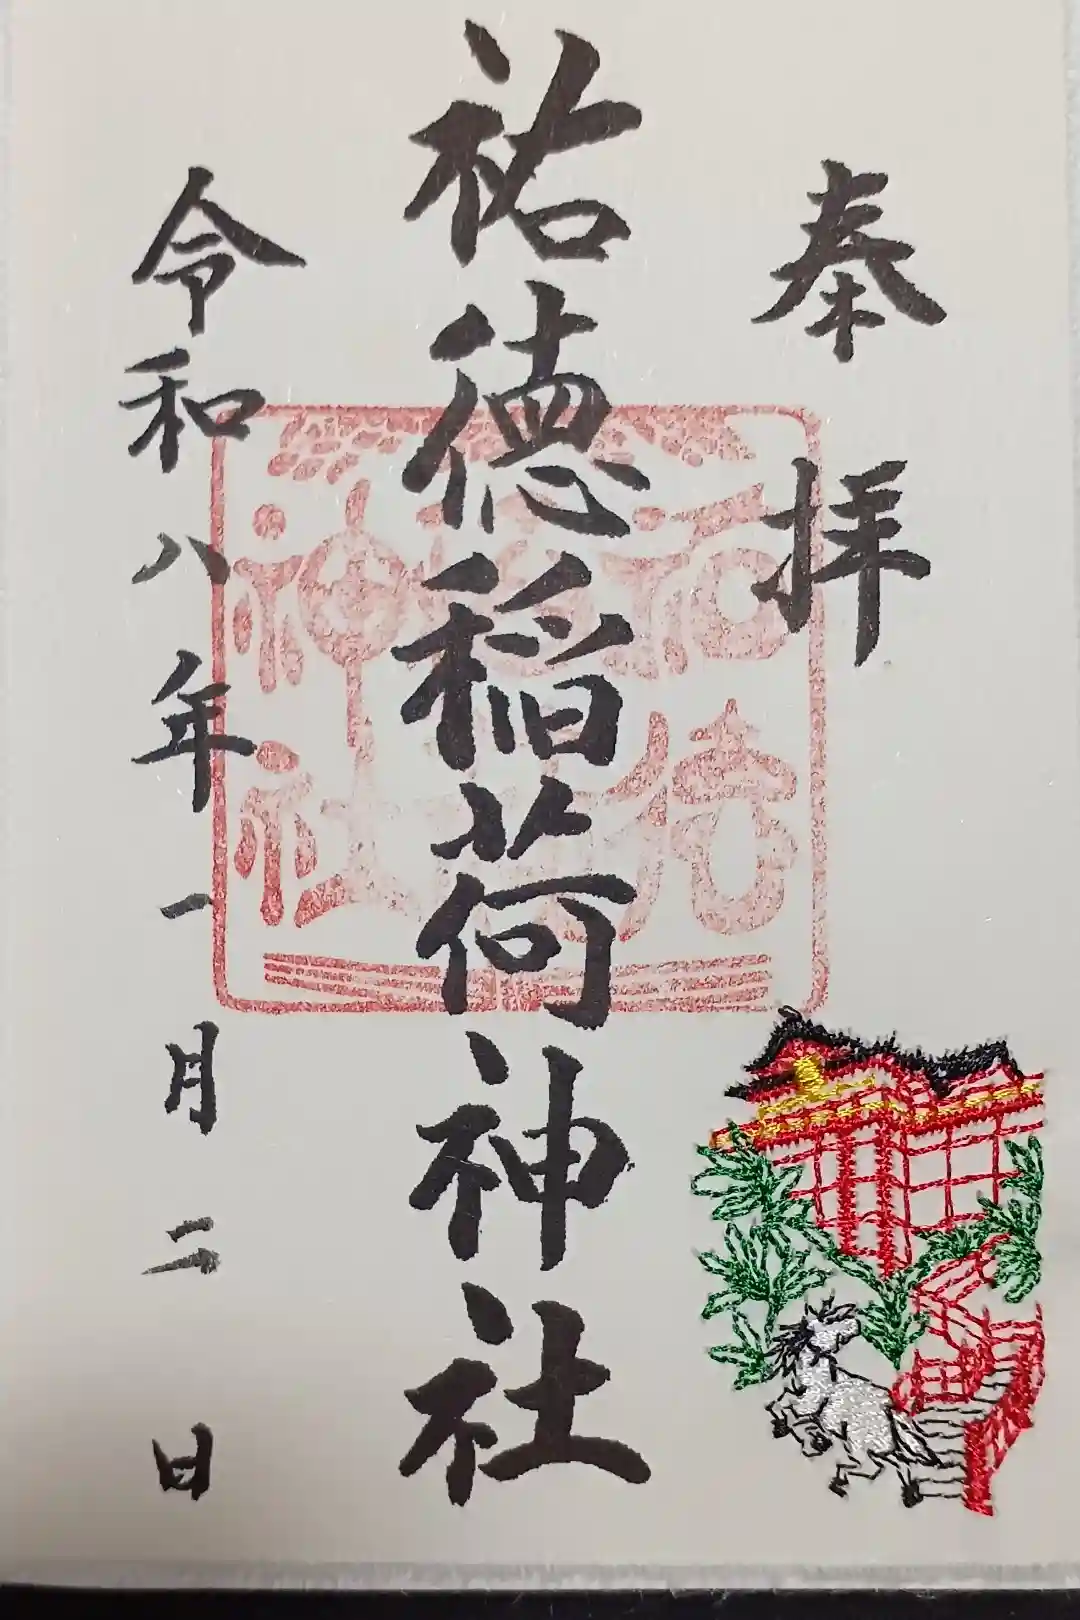 奉拝
祐徳稲荷神社
令和八年一月二日
祐徳稲荷神社